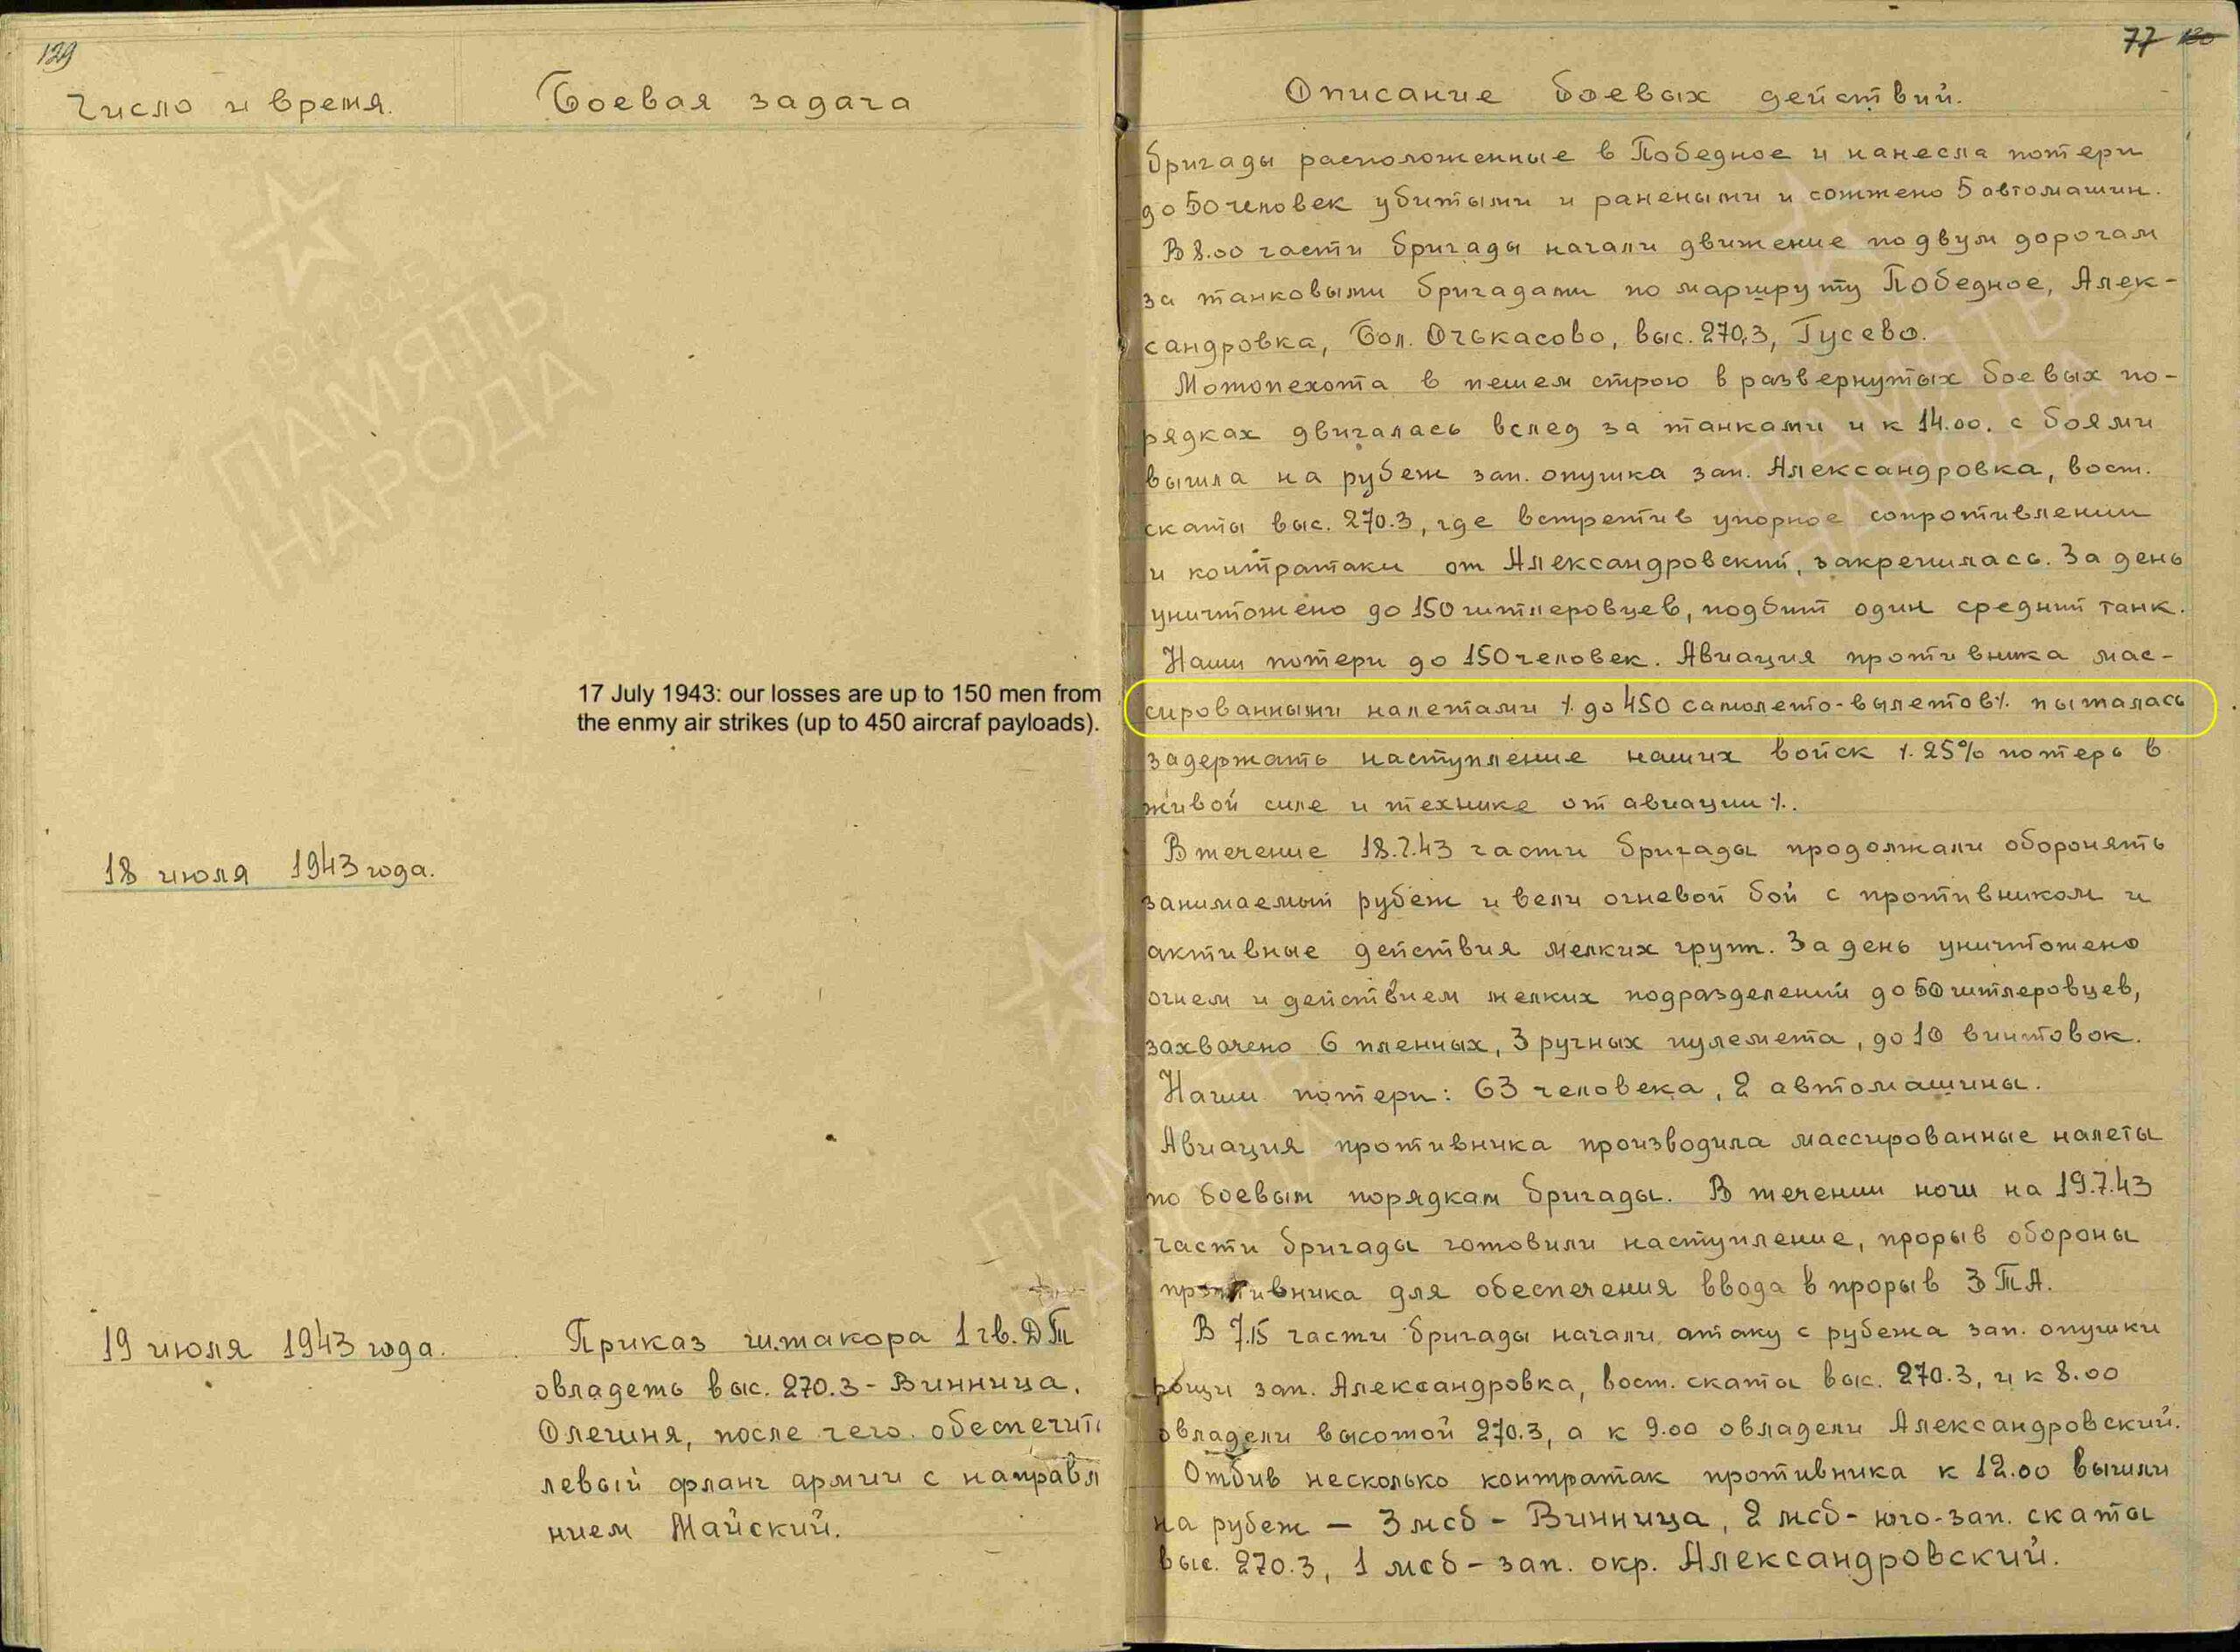 129
Число и время.
Боевая задача
17 July 1943: our losses are up to 150 men from
the enmy air strikes (up to 450 aircraf payloads).
18 июля 1943 года.
19 июля 1943 года.
Приказ штакора 1 гв. ДТ
овладеть выс. 270.3 - Винница,
Олешня, после чего обеспечить
левый фланг армии с направл
нием Майский.
77 130
Описание боевых действий.
бригады расположенные в Победное и нанесла потери
до 50 человек убитыми и ранеными и сожжено 5 автомашин.
В 8.00 части бригады начали движение по двум дорогам
за танковыми бригадами по маршруту Победное, Алек-
сандровка, Бол. Очькасово, выс. 270.3, Гусево.
Мотопехота в пешем строю в развернутых боевых по-
рядках двигалась вслед за танками и к 14.00. с боями
вышла на рубеж зап. опушка зап. Александровка, вост.
скаты выс. 270.3, где встретив упорное сопротивлении
и контратаки от Александровский, закрепилась. За день
уничтожено до 150 гитлеровцев, подбит один средний танк.
Наши потери до 150 человек. Авиация противника мас-
сированными налетами ٪ до 450 самолето-вылетов ٪ пыталась
задержать наступление наших войск ٪ 25% потерь в
живой силе и технике от авиации ٪.
В течение 18.7.43 части бригады продолжали оборонять
занимаемый рубеж и вели огневой бой с противником и
активные действия мелких групп. За день уничтожено
огнем и действием мелких подразделений до 50 гитлеровцев,
захвачено 6 пленных, 3 ручных пулемета, до 10 винтовок.
Наши потери: 63 человека, 2 автомашины.
Авиация противника производила массированные налеты
по боевым порядкам бригады. В течении ночи на 19.7.43
части бригады готовили наступление, прорыв обороны
противника для обеспечения ввода в прорыв 3 ТА.
В 7.15 части бригады начали атаку с рубежа зап. опушки
рощи зап. Александровка, вост. скаты выс. 270.3, и к 8.00
овладели высотой 270.3, а к 9.00 овладели Александровский.
Отбив несколько контратак противника к 12.00 вышли
на рубеж - 3 мсб - Винница, 2 мсб - юго-зап. скаты
выс. 270.3, 1 мсб - зап. окр. Александровский.
1941 1945
ПАМЯТЬ
НАРОДА